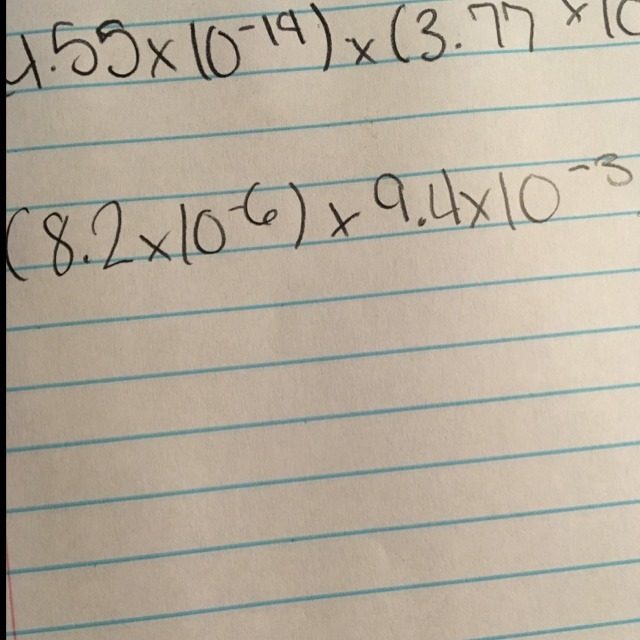 4.55×10⁻¹⁴)×(3.77×10
(8.2×10⁻⁶)×9.4×10⁻³